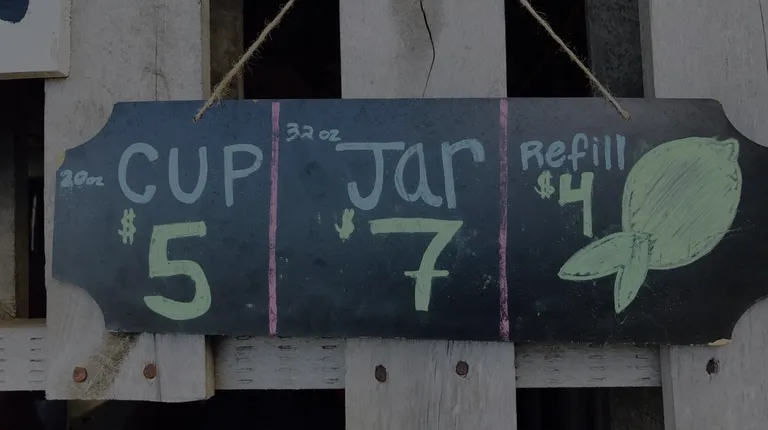 20oz CUP
$5
32oz Jar
$7
Refill
$4